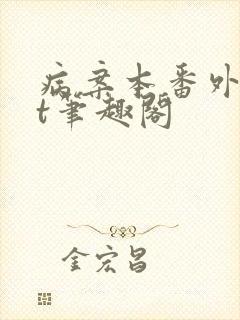 病案本番外
t笔趣阁
金宏昌